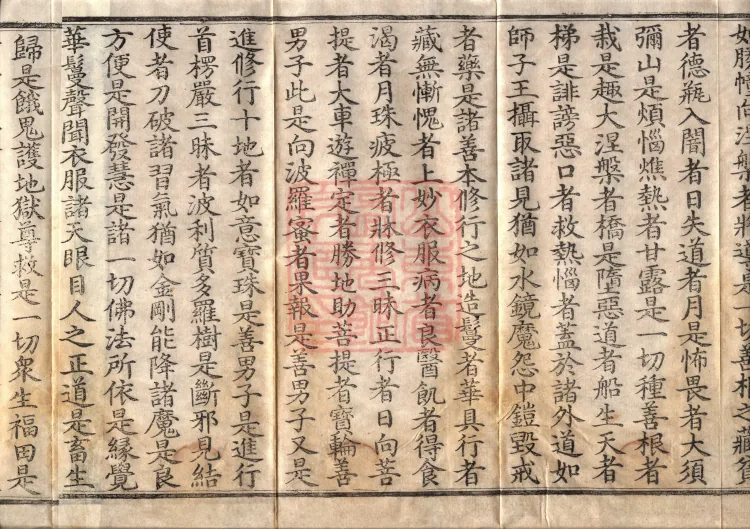 如勝幢向涅槃者將導是一切善根之藏貧
者德瓶入闇者日失道者月是怖畏者大須
彌山是煩惱燋熱者甘露是一切種善根者
栽是趣大涅槃者橋是墮惡道者船生天者
梯是誹謗惡口者救熱惱者蓋於諸外道如
師子王攝取諸見猶如水鏡魔怨中鎧毀戒
者藥是諸善本修行之地造鬘者華具行者
藏無慚愧者上妙衣服病者良醫飢者得食
渴者月珠疲極者牀修三昧正行者日向菩
提者大車遊禪定者勝地助菩提者寶輪善
男子此是向波羅蜜者果報是善男子又是
進修行十地者如意寶珠是善男子是進行
首楞嚴三昧者波利質多羅樹是斷邪見結
使者刀破諸習氣猶如金剛能降諸魔是良
方便是開發慧是諸一切佛法所依是緣覺
華鬘聲聞衣服諸天眼目人之正道是畜生
歸是餓鬼護地獄尊救是一切衆生福田是